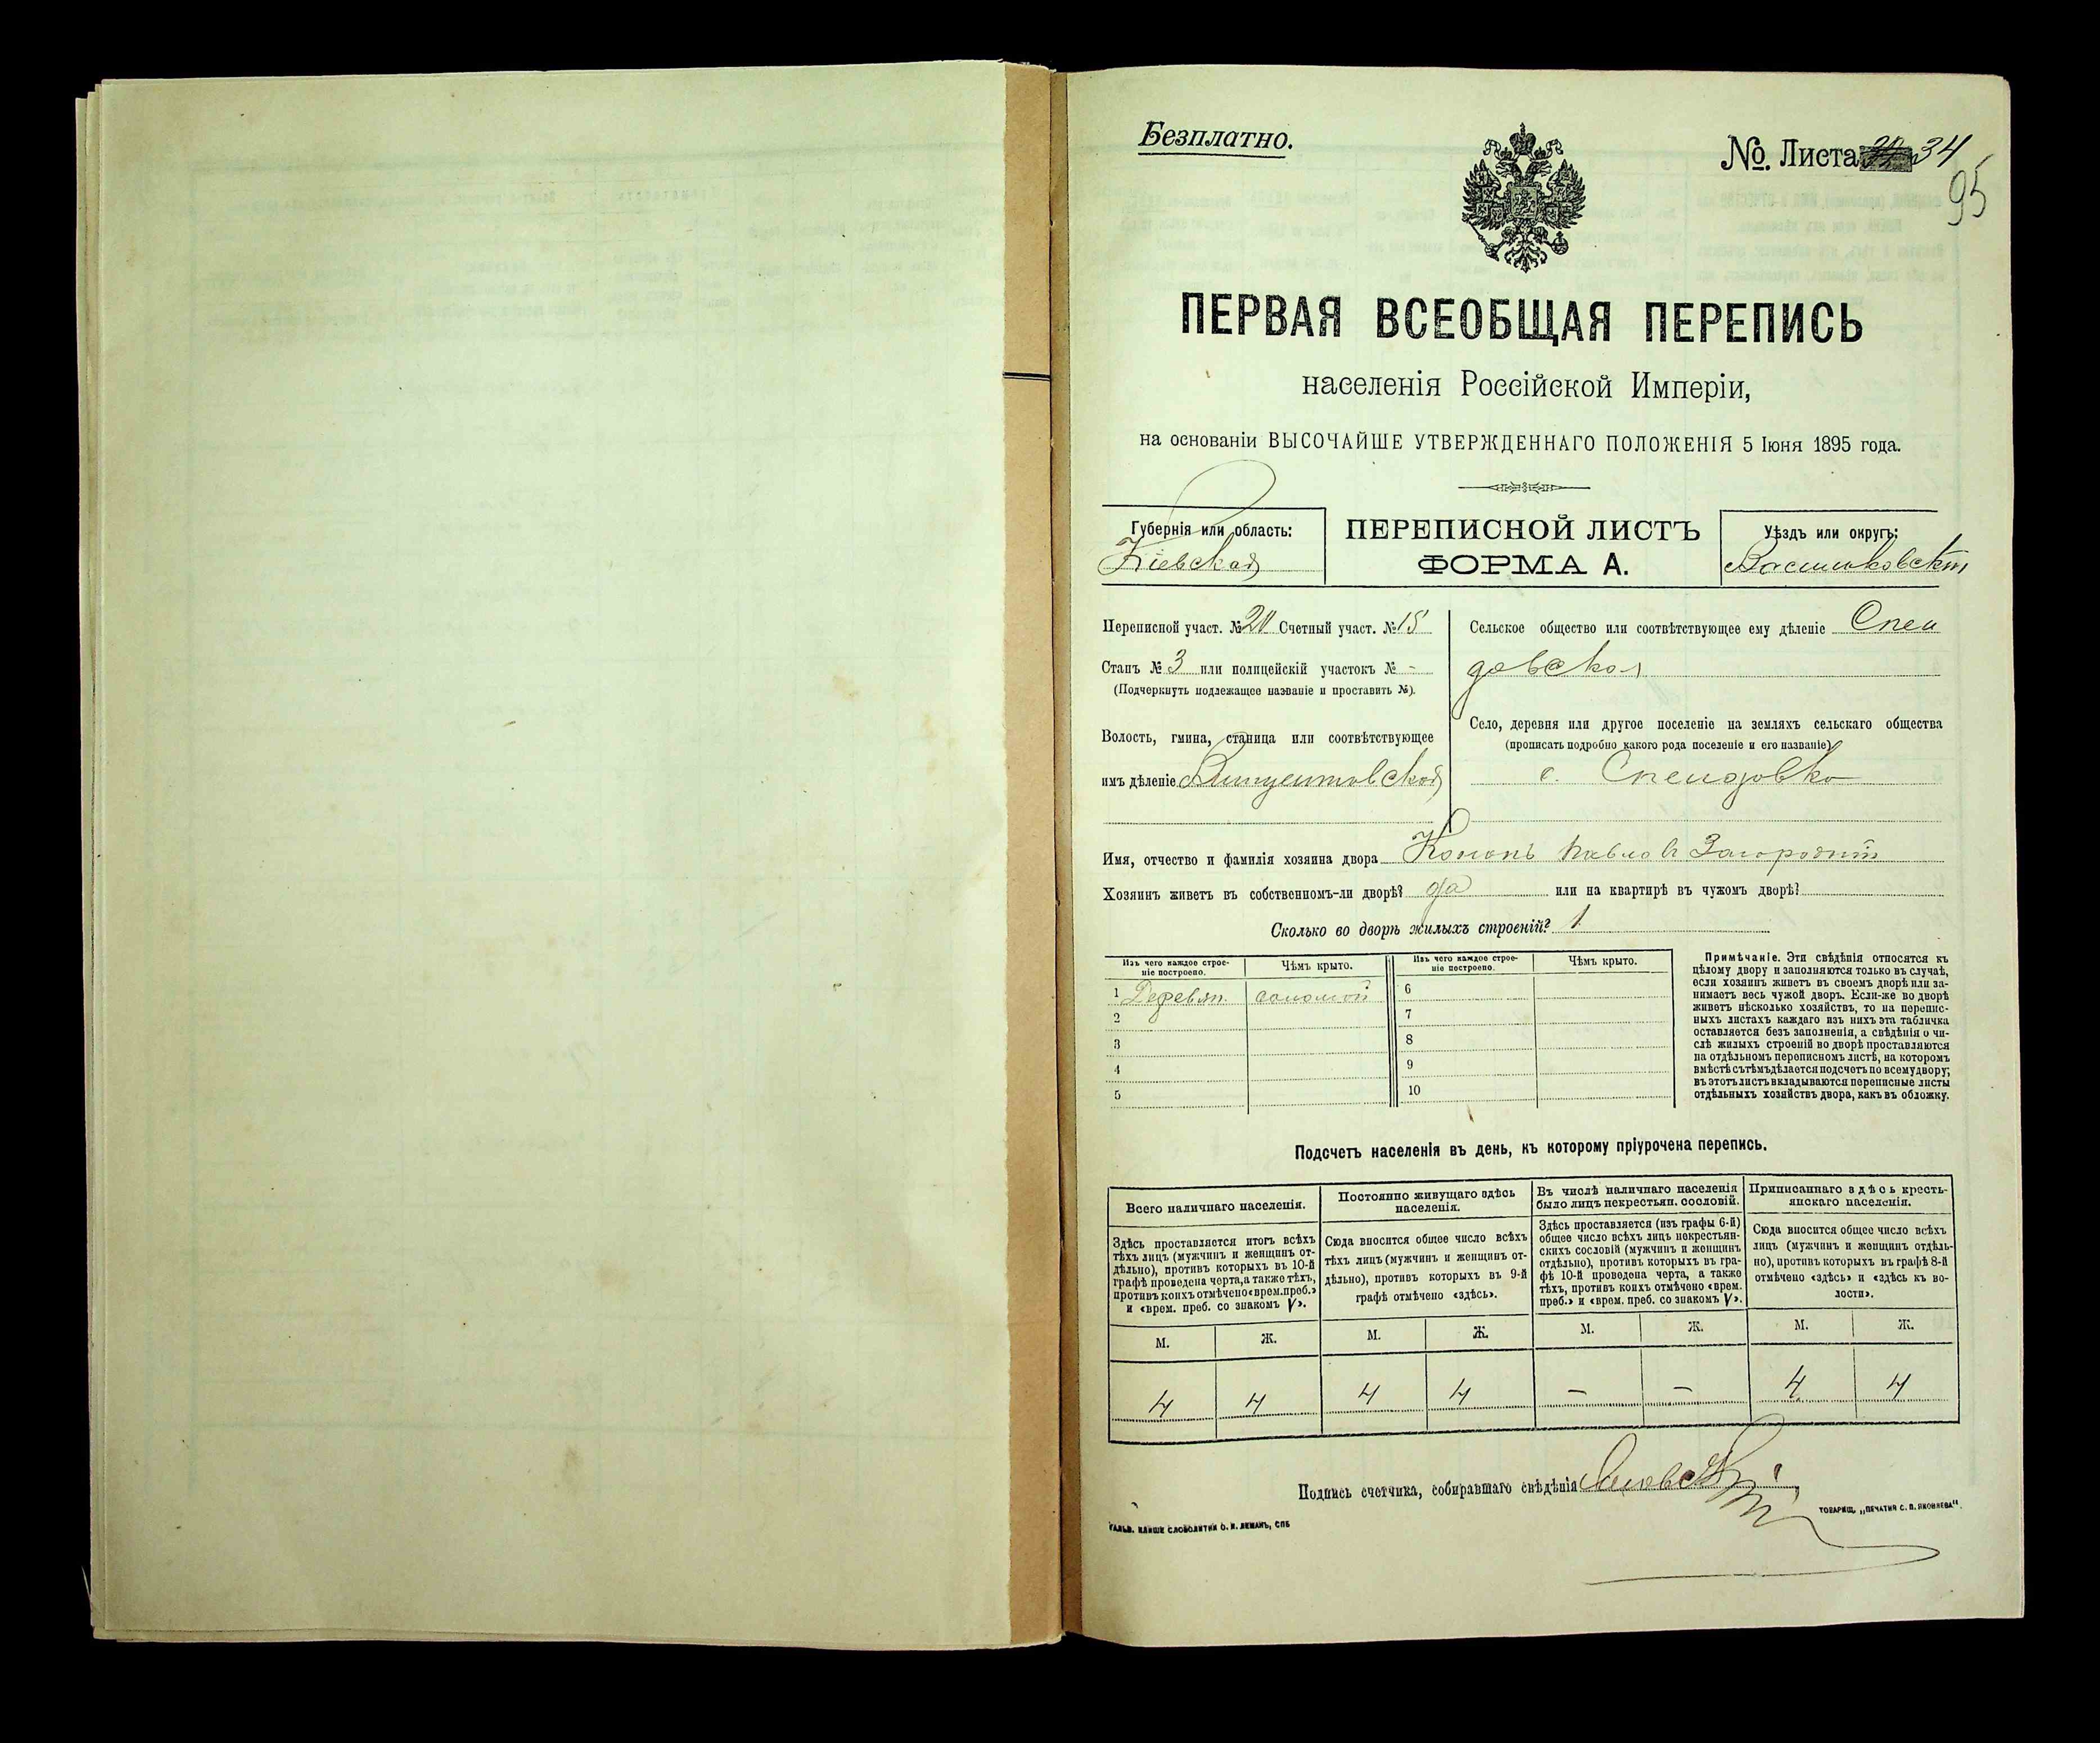 Безплатно.
№. Листа 34
95
ПЕРВАЯ ВСЕОБЩАЯ ПЕРЕПИСЬ
населенія Россійской Имперіи,
на основаніи ВЫСОЧАЙШЕ УТВЕРЖДЕННАГО ПОЛОЖЕНІЯ 5 Іюня 1895 года.
Губернія или область:
Кіевская
ПЕРЕПИСНОЙ ЛИСТЪ
ФОРМА А.
Уѣздъ или округъ:
Васильковскій
Переписной участ. № 20 Счетный участ. № 15
Станъ № 3 или полицейскій участокъ № -
(Подчеркнуть подлежащее названіе и проставить №).
Волость, гмина, станица или соотвѣтствующее
имъ дѣленіе Винцентовской
Сельское общество или соотвѣтствующее ему дѣленіе Спен
довское
Село, деревня или другое поселеніе на земляхъ сельскаго общества
(прописать подробно какого рода поселеніе и его названіе)
с. Спендовка
Имя, отчество и фамилія хозяина двора Кононъ Павловъ Загородній
Хозяинъ живетъ въ собственномъ-ли дворѣ? да или на квартирѣ въ чужомъ дворѣ?
Сколько во дворѣ жилыхъ строеній? 1
Изъ чего каждое строе-
ніе построено.
Чѣмъ крыто.
Изъ чего каждое строе-
ніе построено.
Чѣмъ крыто.
1 Деревян. соломой 6
2 7
3 8
4 9
5 10
Примѣчаніе. Эти свѣдѣнія относятся къ
цѣлому двору и заполняются только въ случаѣ,
если хозяинъ живетъ въ своемъ дворѣ или за-
нимаетъ весь чужой дворъ. Если-же во дворѣ
живетъ нѣсколько хозяйствъ, то на перепис-
ныхъ листахъ каждаго изъ нихъ эта табличка
оставляется безъ заполненія, а свѣдѣнія о чи-
слѣ жилыхъ строеній во дворѣ проставляются
на отдѣльномъ переписномъ листѣ, на которомъ
вмѣстѣ съ тѣмъ дѣлается подсчетъ по всему двору;
въ этотъ листъ вкладываются переписные листы
отдѣльныхъ хозяйствъ двора, какъ въ обложку.
Подсчетъ населенія въ день, къ которому пріурочена перепись.
Всего наличнаго населенія.
Постоянно живущаго здѣсь
населенія.
Въ числѣ наличнаго населенія
было лицъ некрестьян. сословій.
Приписаннаго здѣсь кресть-
янскаго населенія.
Здѣсь проставляется итогъ всѣхъ
тѣхъ лицъ (мужчинъ и женщинъ от-
дѣльно), противъ которыхъ въ 10-й
графѣ проведена черта, а также тѣхъ,
противъ коихъ отмѣчено «врем. преб.»
и «врем. преб. со знакомъ V».
Сюда вносится общее число всѣхъ
тѣхъ лицъ (мужчинъ и женщинъ от-
дѣльно), противъ которыхъ въ 9-й
графѣ отмѣчено «здѣсь».
Здѣсь проставляется (изъ графы 6-й)
общее число всѣхъ лицъ некрестьян-
скихъ сословій (мужчинъ и женщинъ
отдѣльно), противъ которыхъ въ гра-
фѣ 10-й проведена черта, а также
тѣхъ, противъ коихъ отмѣчено «врем.
преб.» и «врем. преб. со знакомъ V».
Сюда вносится общее число всѣхъ
лицъ (мужчинъ и женщинъ отдѣль-
но), противъ которыхъ въ графѣ 8-й
отмѣчено «здѣсь» и «здѣсь къ во-
лости».
М. Ж. М. Ж. М. Ж. М. Ж.
4 4 4 4 – – 4 4
Подпись счетчика, собиравшаго свѣдѣнія
ТОВАРИЩ. „ПЕЧАТНЯ С. П. ЯКОВЛЕВА".